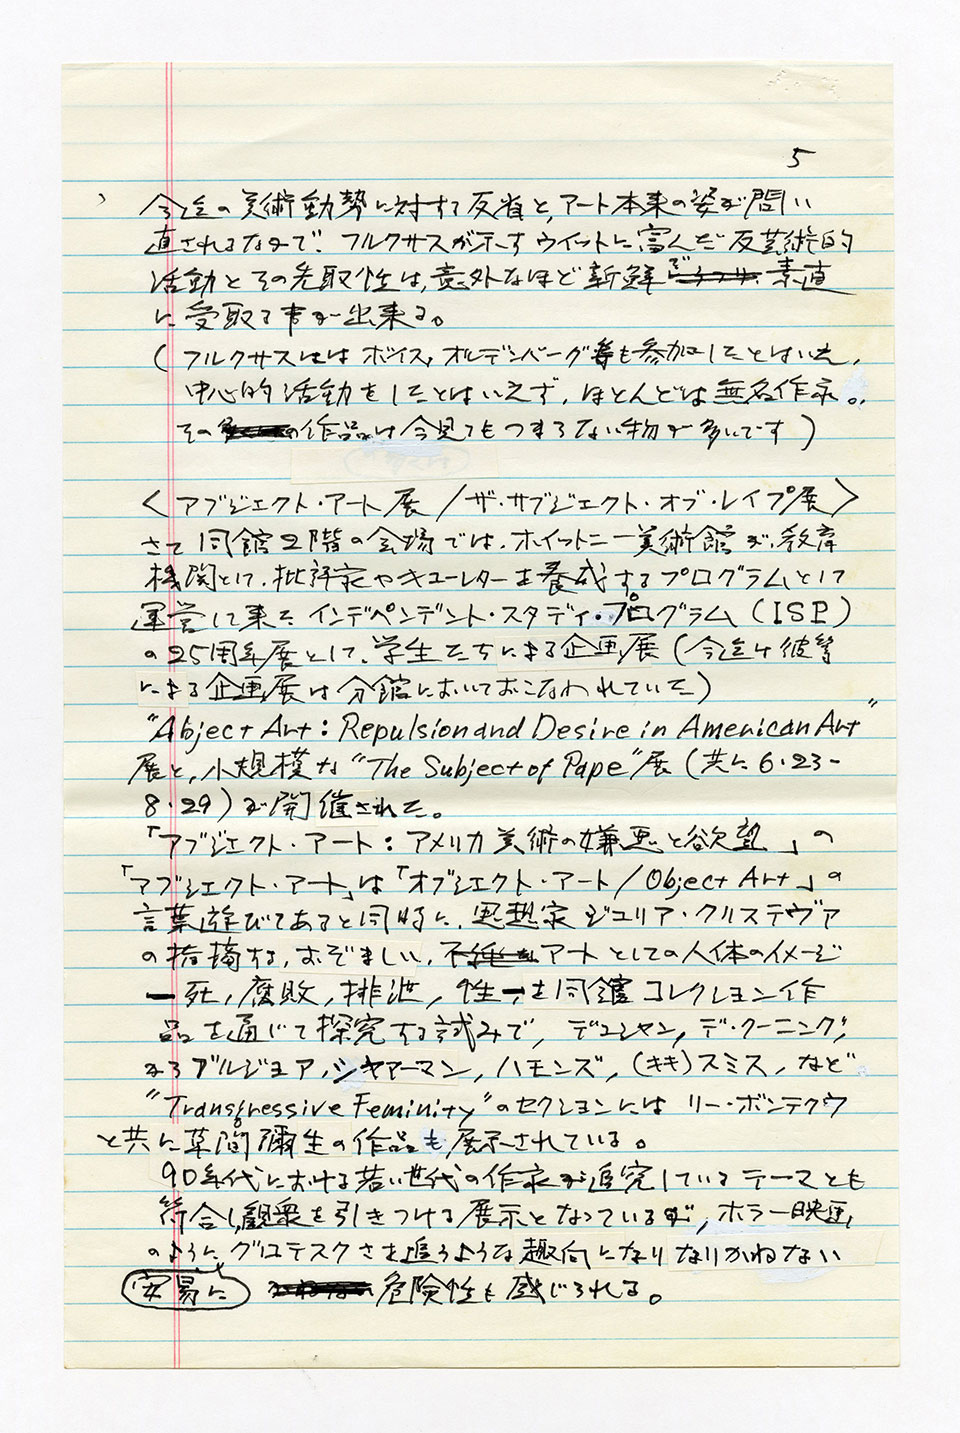 5
今迄の美術動勢に対する反省と、アート本来の姿が問い
直されるなかで、フルクサスが示すウイットに富んだ反芸術的
活動とその先取性は、意外なほど新鮮で 素直
に受取る事が出来る。
(フルクサスにはボイス、オルデンバーグ等も参加したとはいえ、
中心的活動をしたとはいえず、ほとんどは無名作家。
その 作品は今見てもつまらない物が多いです)
〈アブジェクト・アート展/ザ・サブジェクト・オブ・レイプ展〉
さて同館2階の会場では、ホイットニー美術館が、教育
機関として、批評家やキューレターを養成するプログラムとして
運営して来た インデペンデント・スタディ・プログラム(ISP)
の25周年展として、学生たちによる企画展(今迄は彼等
による企画展は分館においておこなわれていた)
"Abject Art: Repulsion and Desire in American Art"
展と、小規模な"The Subject of Pape"展(共に6・23-
8・29)が開催された。
「アブジェクト・アート:アメリカ美術の嫌悪と欲望」の
「アブジェクト・アート」は「オブジェクト・アート/Object Art」の
言葉遊びであると同時に、思想家ジュリア・クリステヴァ
の指摘する、おぞましい、アートとしての人体のイメージ
ー死、腐敗、排泄、性ーを同館コレクション作
品を通じて探究する試みで、デュシャン、デ・クーニング、
から ブルジョア、シャーマン、ハモンズ、(キキ)スミス、など
"Transgressive Feminity"のセクションには リー・ボンテクウ
と共に草間彌生の作品も展示されている。
90年代における若い世代の作家が追究しているテーマとも
符合し、観衆を引きつける展示となっているが、ホラー映画
のように、グロテスクさを追うような趣向になりなりかねない
安易に 危険性も感じられる。